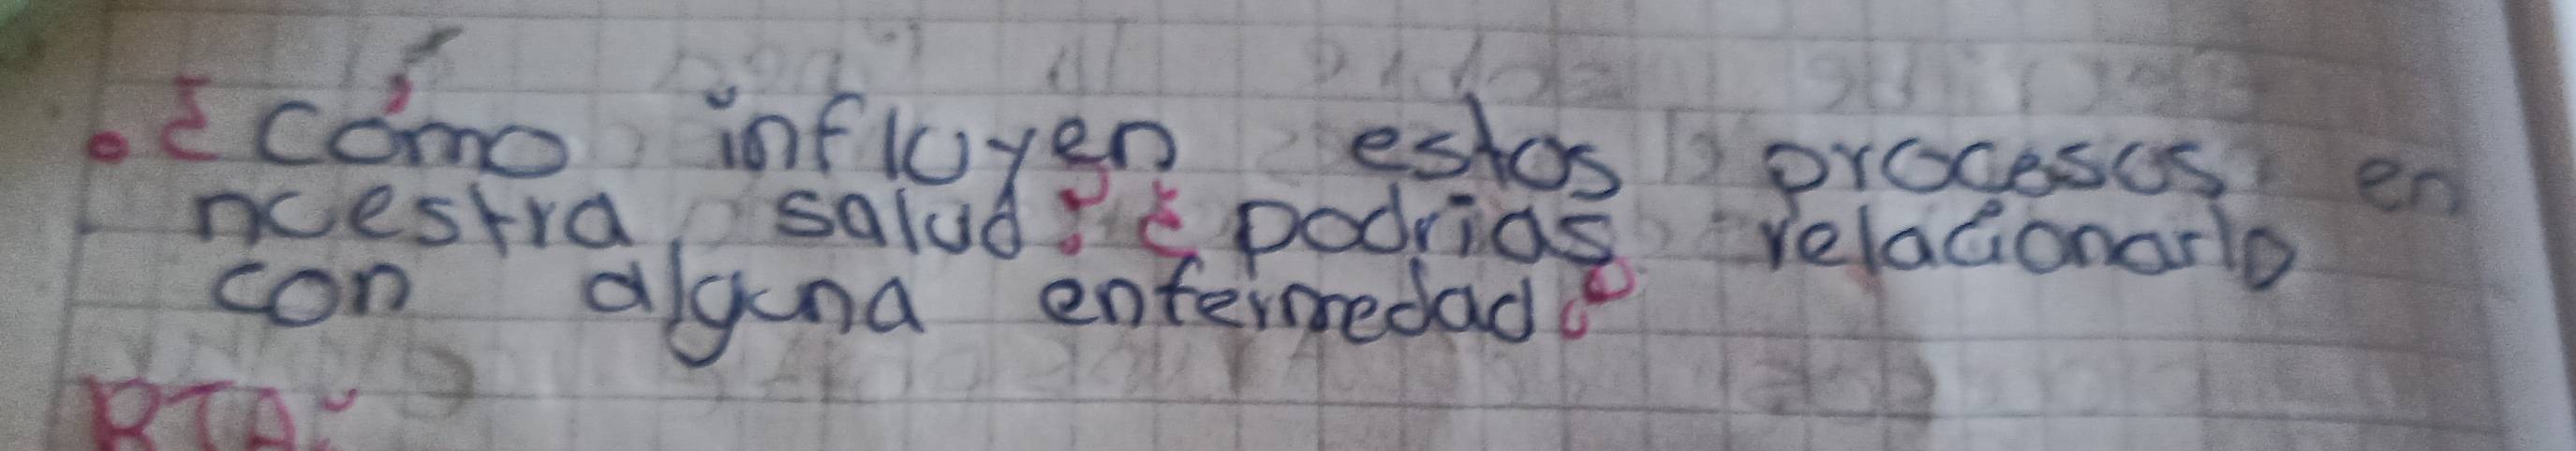 • ¿cómo influyen estos procesos en
nuestra salud? ¿podrias relacionarlo
con alguna enfermedad?
RTA: